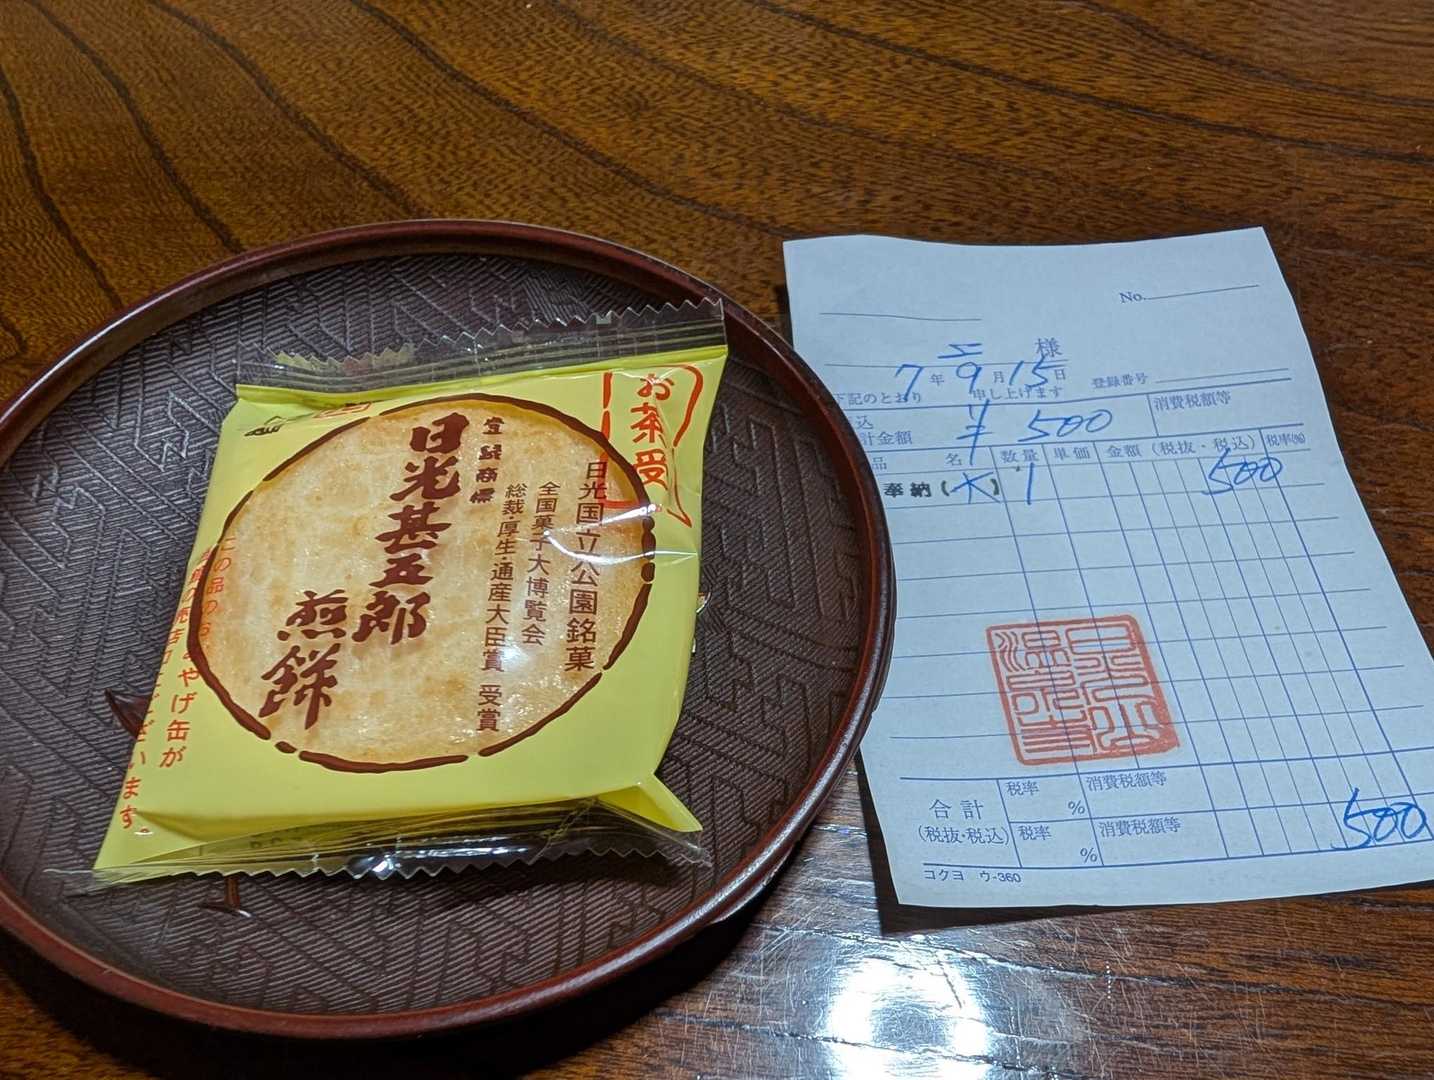 お茶受
日光国立公園銘菓
全国菓子大博覧会
総裁・厚生・通産大臣賞 受賞
登録商標
日光甚五郎
煎餅
この品のおみやげ缶が
ございます。
No.
様
7年9月15日
登録番号
下記のとおり 申し上げます
消費税額等
込
計金額 ¥500
品 名 数量 単価 金額 (税抜・税込) 税率(%)
奉納(大) 1 500
合計
(税抜・税込)
税率 % 消費税額等
税率 % 消費税額等
500
コクヨ ウ-360